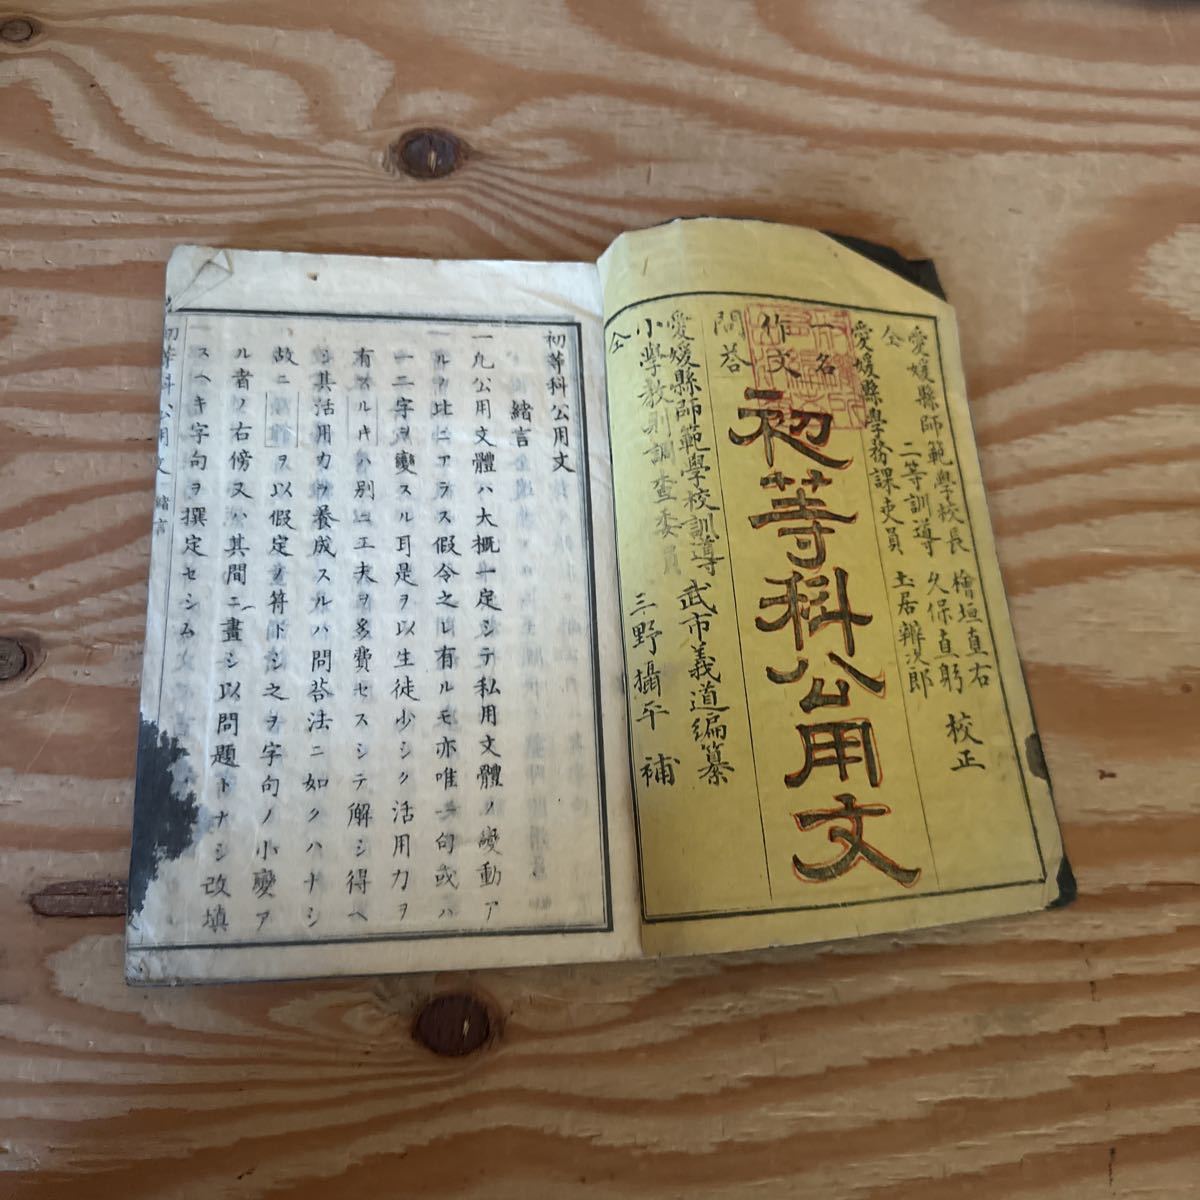 愛媛縣師範學校長 檜垣直右
仝 二等訓導 久保直躬 校正
愛媛縣學務課吏員 土居辨次郎
一名
作文
問荅
初等科公用文
愛媛縣師範學校訓導 武市義道編纂
小學教則調查委員
仝 三野攝平 補
初等科公用文
緒言
一凡公用文體ハ大概一定シテ私用文體ノ變動ア
ルノ比ニアラス假令之レ有ルモ亦唯一句或ハ
一二字ヲ變スル耳是ヲ以生徒少シク活用力ヲ
有スルキハ別ニ工夫ヲ多費セスシテ解シ得ヘ
シ其活用力ヲ養成スルハ問荅法ニ如クハナシ
故ニ ヲ以假定ノ符トシ之ヲ字句ノ小變ア
ル者ノ右傍又ハ其間ニ畫シ以問題トナシ改填
スヘキ字句ヲ撰定セシム
初等科公用文 緒言